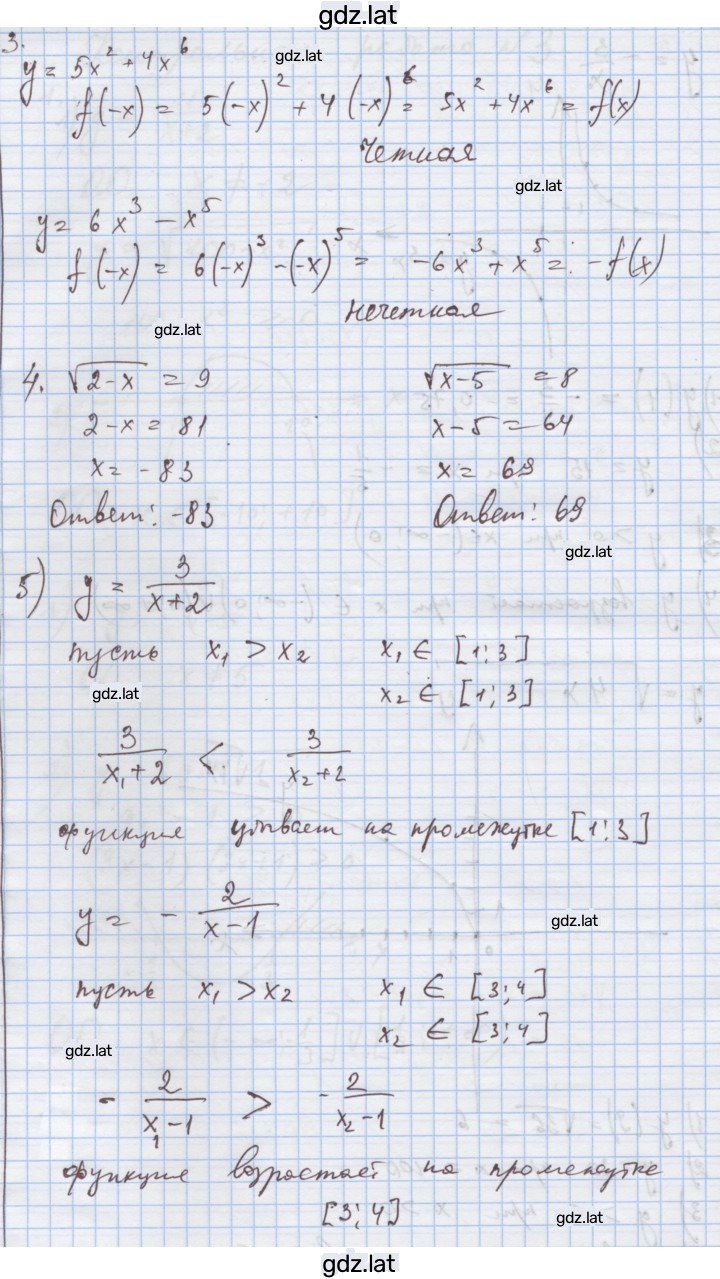 gdz.lat
3.
y = 5x² + 4x⁶
gdz.lat
f(-x) = 5(-x)² + 4(-x)⁶ = 5x² + 4x⁶ = f(x)
Четная
gdz.lat
y = 6x³ - x⁵
f(-x) = 6(-x)³ - (-x)⁵ = -6x³ + x⁵ = -f(x)
нечетная
gdz.lat
4. √(2-x) = 9 √(x-5) = 8
2-x = 81 x-5 = 64
x = -83 x = 69
Ответ: -83 Ответ: 69
gdz.lat
5) y = 3/(x+2)
пусть x₁ > x₂ x₁ ∈ [1; 3]
gdz.lat
x₂ ∈ [1; 3]
3/(x₁+2) < 3/(x₂+2)
функция убывает на промежутке [1; 3]
y = - 2/(x-1)
gdz.lat
пусть x₁ > x₂ x₁ ∈ [3; 4]
x₂ ∈ [3; 4]
gdz.lat
- 2/(x₁-1) > - 2/(x₂-1)
функция возрастает на промежутке
[3; 4]
gdz.lat
gdz.lat